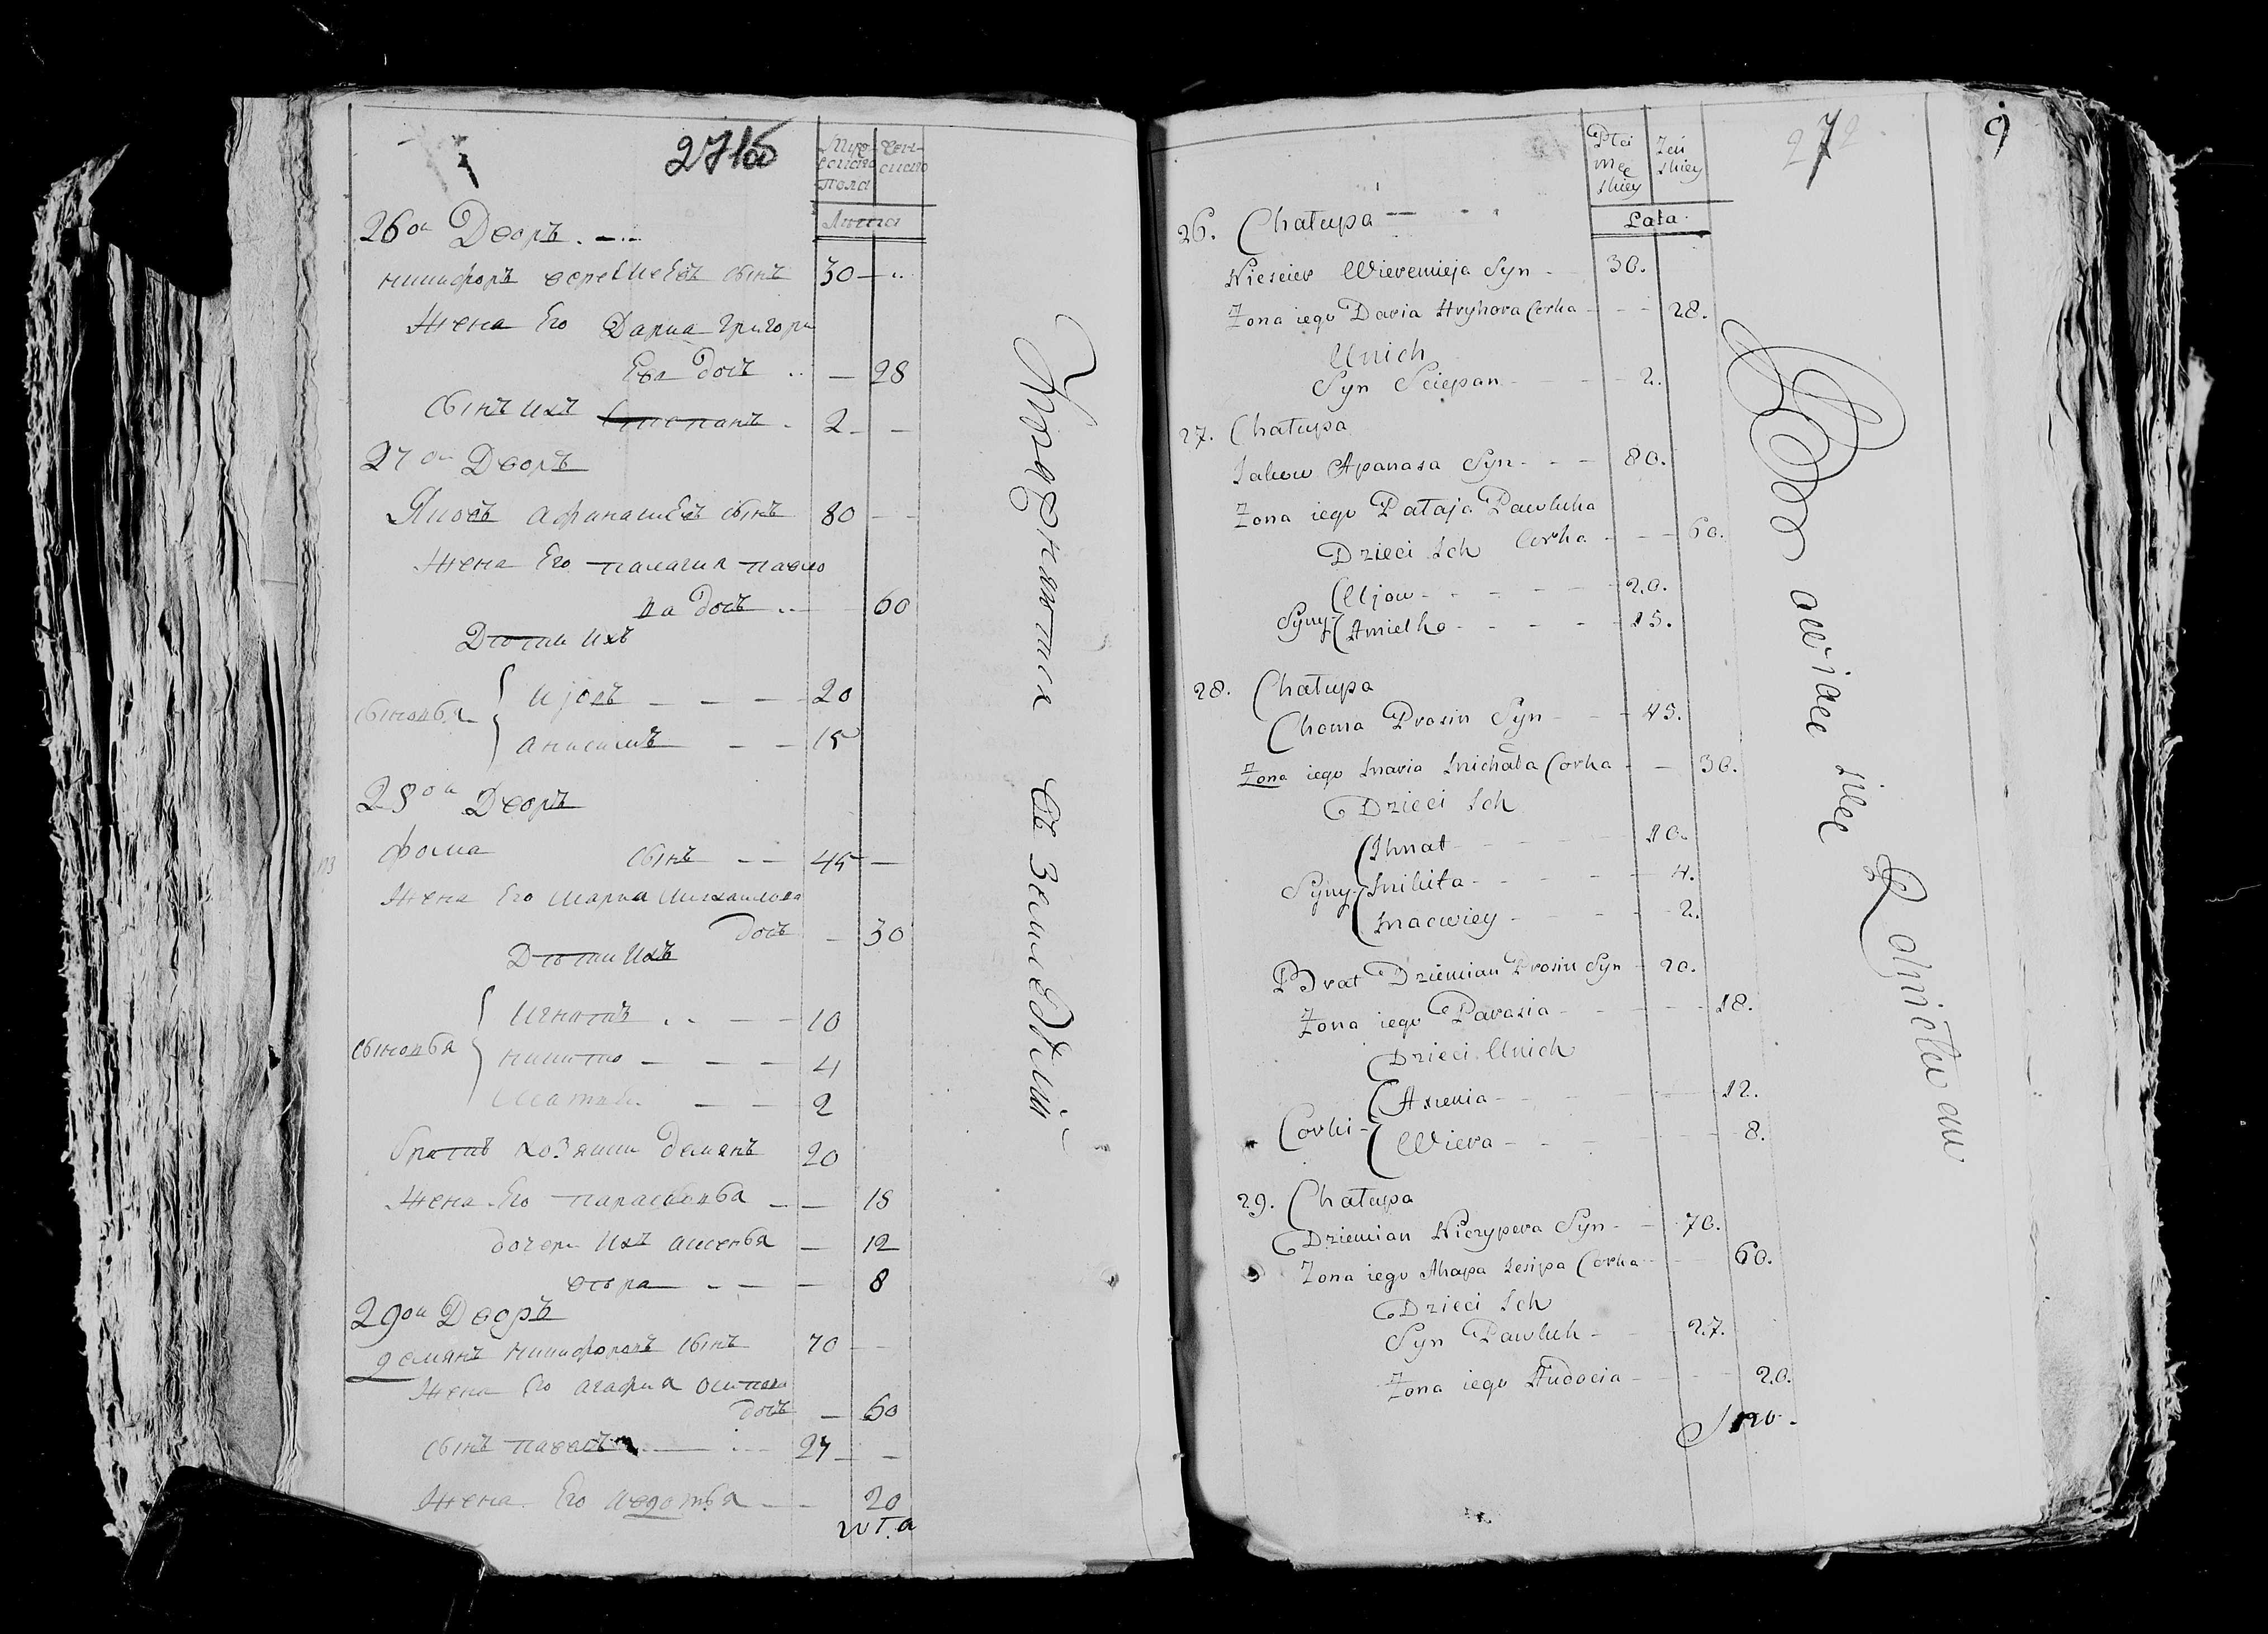 271об
Мужескаго пола
Женскаго
Лѣта
26ои Дворъ
никифоръ веремѣевъ сынъ 30
Жена Его Дариа григорь
Ева дочь 28
сынъ ихъ Степанъ 2
27ои Дворъ
Яковъ афанасиевъ сынъ 80
Жена Его палагия павло
ва дочь 60
Дѣти ихъ
сыновья
Иовъ 20
анисимъ 15
28ои Дворъ
фома сынъ 45
Жена Его мариа михаилова
дочь 30
Дѣти ихъ
сыновья
Игнатъ 10
никита 4
Матвѣи 2
братъ хозяина демянъ 20
Жена Его парасковья 18
дочери ихъ аксенья 12
вѣра 8
29ои Дворъ
демянъ никифоровъ сынъ 70
Жена Его агафия осипова
дочь 60
сынъ павелъ 27
Жена Его авдотья 20
Упражняются въ земледѣлии
272
9
Płci męskiey
Żeńskiey
Lata
26. Chałupa
Nicscier Wieremieja Syn 30.
Żona iego Daria Hryhora Corka 28.
Unich
Syn Sciepan 2.
27. Chałupa
Jakow Apanasa Syn 80.
Żona iego Pałaja Pawluka
Corka 60.
Dzieci Ich
Syny
Ujow 20.
Anielko 15.
28. Chałupa
Choma Prosin Syn 45.
Żona iego Maria Michała Corka 30.
Dzieci Ich
Syny
Ihnat 10.
Mikita 4.
Macwiey 2.
Brat Dziemian Prosin Syn 20.
Żona iego Parasia 18.
Dzieci Unich
Corki
Axienia 12.
Wiera 8.
29. Chałupa
Dziemian Niczypera Syn 70.
Żona iego Ahapa Josipa Corka 60.
Dzieci Ich
Syn Pawluk 27.
Żona iego Audocia 20.
Rolnictwem